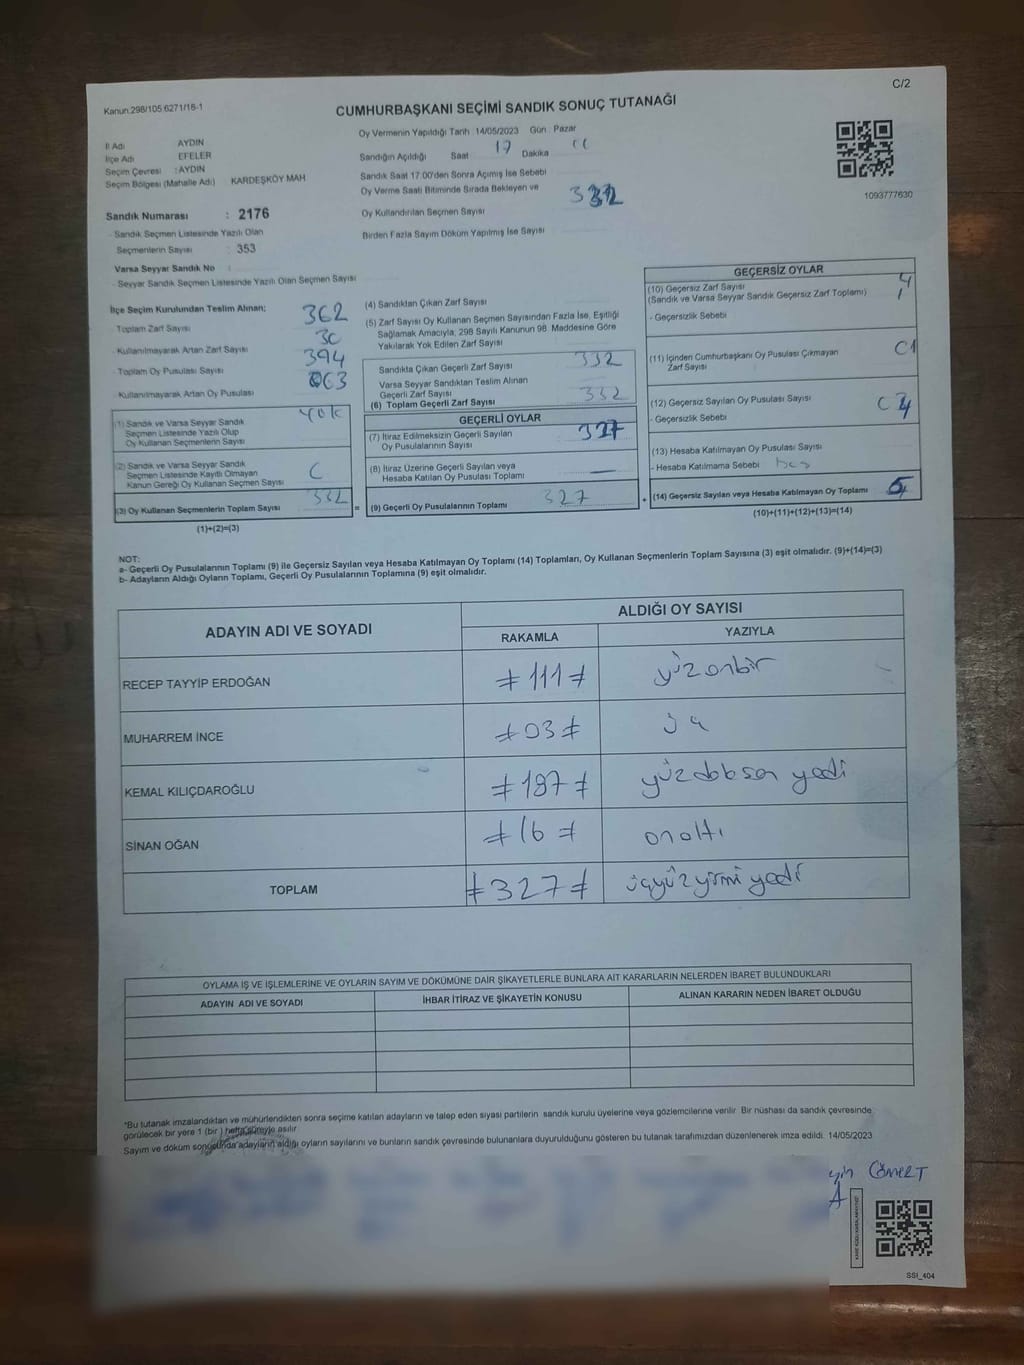 C/2
Kanun:298/105 6271/18-1
CUMHURBAŞKANI SEÇİMİ SANDIK SONUÇ TUTANAĞI
İl Adı AYDIN
İlçe Adı EFELER
Seçim Çevresi : AYDIN
Seçim Bölgesi (Mahalle Adı) KARDEŞKÖY MAH
Sandık Numarası : 2176
- Sandık Seçmen Listesinde Yazılı Olan
Seçmenlerin Sayısı : 353
Varsa Seyyar Sandık No :
- Seyyar Sandık Seçmen Listesinde Yazılı Olan Seçmen Sayısı
Oy Vermenin Yapıldığı Tarih 14/05/2023 Gün : Pazar
Sandığın Açıldığı Saat 17 Dakika
Sandık Saat 17.00'den Sonra Açımış İse Sebebi
Oy Verme Saati Bitiminde Sırada Bekleyen ve
Oy Kullandırılan Seçmen Sayısı
Birden Fazla Sayım Döküm Yapılmış İse Sayısı
1093777630
İlçe Seçim Kurulundan Teslim Alınan;
- Toplam Zarf Sayısı 362
- Kullanılmayarak Artan Zarf Sayısı
- Toplam Oy Pusulası Sayısı 394
- Kullanılmayarak Artan Oy Pusulası 063
(1) Sandık ve Varsa Seyyar Sandık
Seçmen Listesinde Yazılı Olup
Oy Kullanan Seçmenlerin Sayısı
(2) Sandık ve Varsa Seyyar Sandık
Seçmen Listesinde Kayıtlı Olmayan
Kanun Gereği Oy Kullanan Seçmen Sayısı
(3) Oy Kullanan Seçmenlerin Toplam Sayısı 332
(1)+(2)=(3)
(4) Sandıktan Çıkan Zarf Sayısı
(5) Zarf Sayısı Oy Kullanan Seçmen Sayısından Fazla İse, Eşitliği
Sağlamak Amacıyla, 298 Sayılı Kanunun 98. Maddesine Göre
Yakılarak Yok Edilen Zarf Sayısı
Sandıkta Çıkan Geçerli Zarf Sayısı 332
Varsa Seyyar Sandıktan Teslim Alınan
Geçerli Zarf Sayısı
(6) Toplam Geçerli Zarf Sayısı 332
GEÇERLİ OYLAR
(7) İtiraz Edilmeksizin Geçerli Sayılan
Oy Pusulalarının Sayısı 327
(8) İtiraz Üzerine Geçerli Sayılan veya
Hesaba Katılan Oy Pusulası Toplamı —
= (9) Geçerli Oy Pusulalarının Toplamı 327
GEÇERSİZ OYLAR
(10) Geçersiz Zarf Sayısı
(Sandık ve Varsa Seyyar Sandık Geçersiz Zarf Toplamı)
- Geçersizlik Sebebi
(11) İçinden Cumhurbaşkanı Oy Pusulası Çıkmayan
Zarf Sayısı
(12) Geçersiz Sayılan Oy Pusulası Sayısı
- Geçersizlik Sebebi
(13) Hesaba Katılmayan Oy Pusulası Sayısı
- Hesaba Katılmama Sebebi
+ (14) Geçersiz Sayılan veya Hesaba Katılmayan Oy Toplamı 5
(10)+(11)+(12)+(13)=(14)
NOT:
a- Geçerli Oy Pusulalarının Toplamı (9) ile Geçersiz Sayılan veya Hesaba Katılmayan Oy Toplamı (14) Toplamları, Oy Kullanan Seçmenlerin Toplam Sayısına (3) eşit olmalıdır. (9)+(14)=(3)
b- Adayların Aldığı Oyların Toplamı, Geçerli Oy Pusulalarının Toplamına (9) eşit olmalıdır.
ADAYIN ADI VE SOYADI ALDIĞI OY SAYISI
RAKAMLA YAZIYLA
RECEP TAYYİP ERDOĞAN ≠111≠ yüzonbir
MUHARREM İNCE ≠03≠
KEMAL KILIÇDAROĞLU ≠197≠
SİNAN OĞAN ≠16≠ onaltı
TOPLAM ≠327≠ üçyüzyirmiyedi
OYLAMA İŞ VE İŞLEMLERİNE VE OYLARIN SAYIM VE DÖKÜMÜNE DAİR ŞİKAYETLERLE BUNLARA AİT KARARLARIN NELERDEN İBARET BULUNDUKLARI
ADAYIN ADI VE SOYADI İHBAR İTİRAZ VE ŞİKAYETİN KONUSU ALINAN KARARIN NEDEN İBARET OLDUĞU
*Bu tutanak imzalandıktan ve mühürlendikten sonra seçime katılan adayların ve talep eden siyasi partilerin sandık kurulu üyelerine veya gözlemcilerine verilir. Bir nüshası da sandık çevresinde
görülecek bir yere 1 (bir) hafta süreyle asılır
Sayım ve döküm sonucunda adayların aldığı oyların sayılarını ve bunların sandık çevresinde bulunanlara duyurulduğunu gösteren bu tutanak tarafımızdan düzenlenerek imza edildi. 14/05/2023
CÖMERT
SSI_404